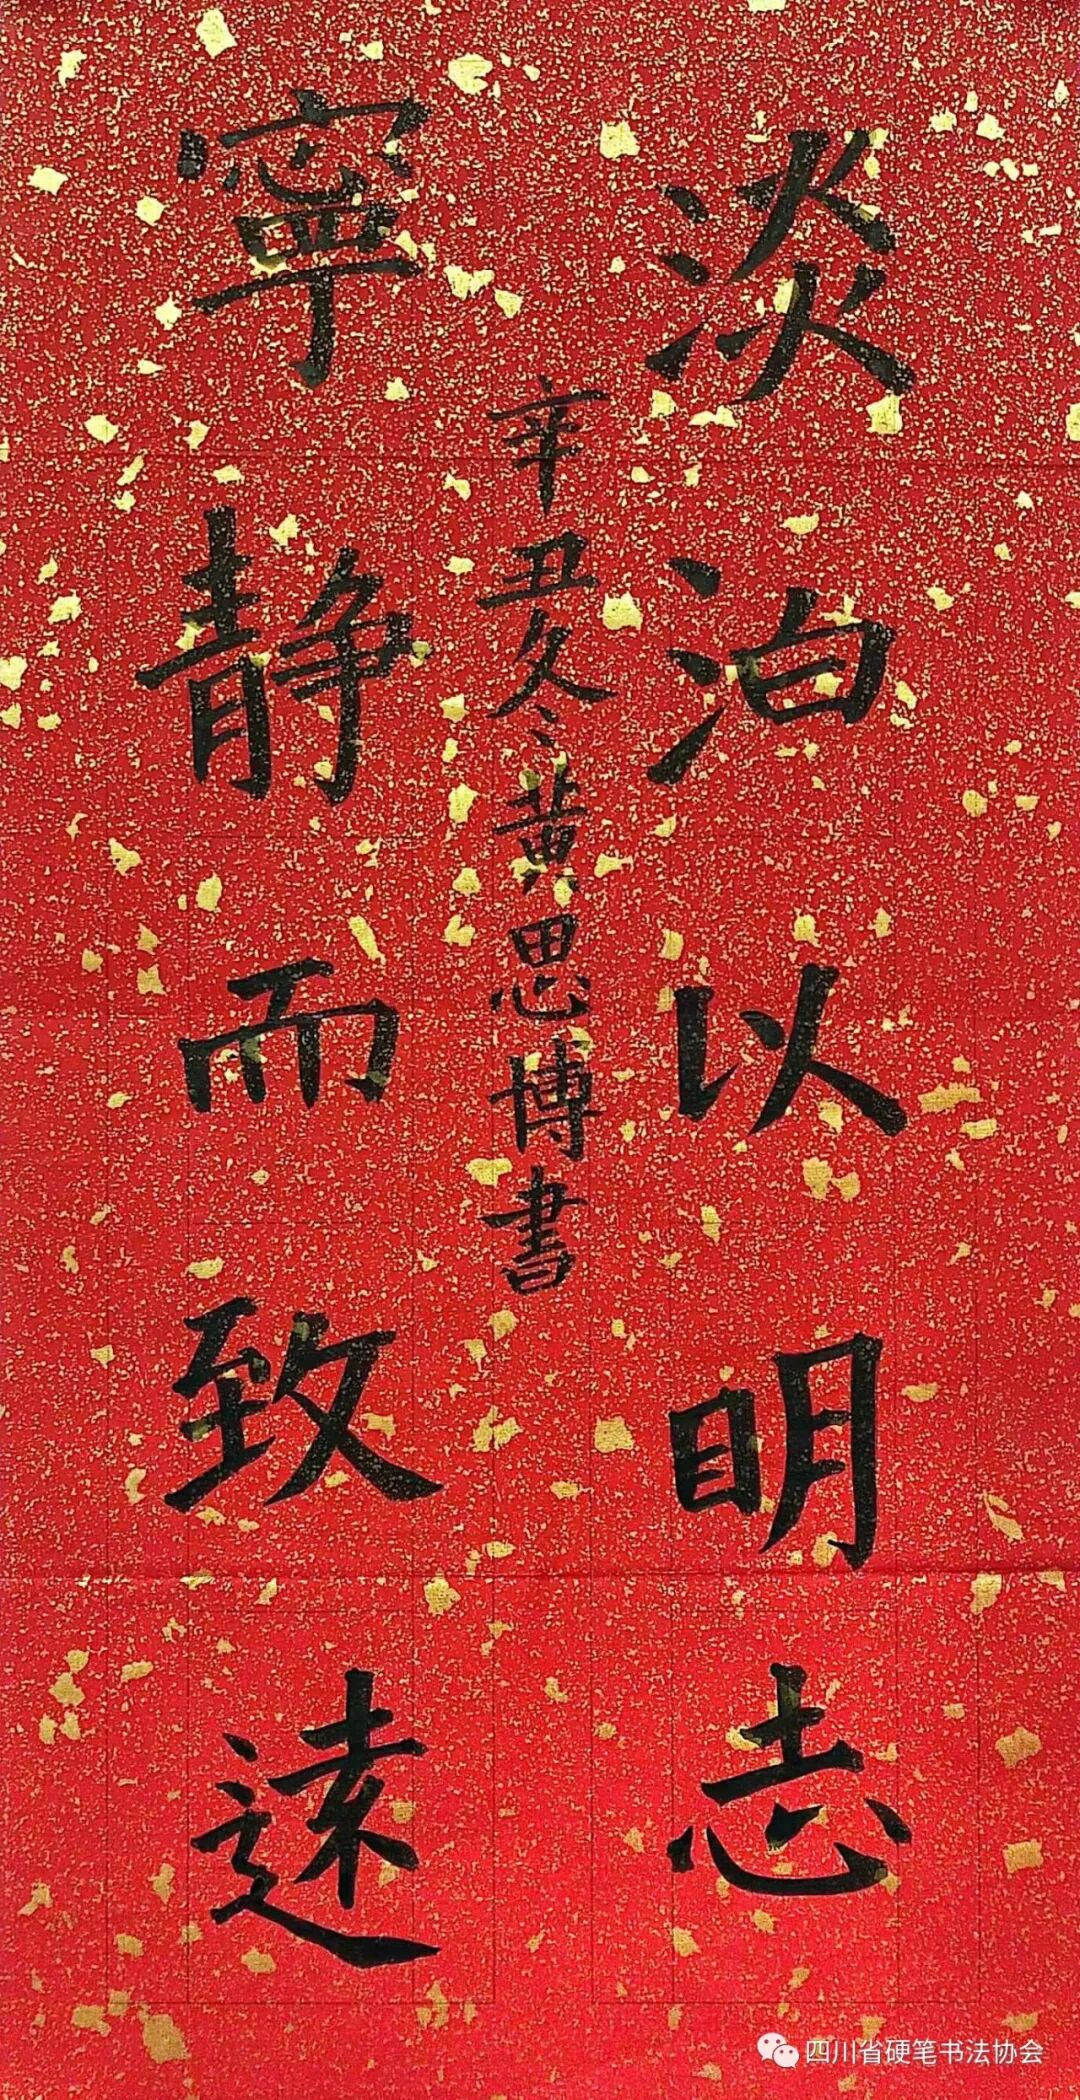 淡泊以明志
寧静而致遠
辛丑冬黄思博書
四川省硬笔书法协会